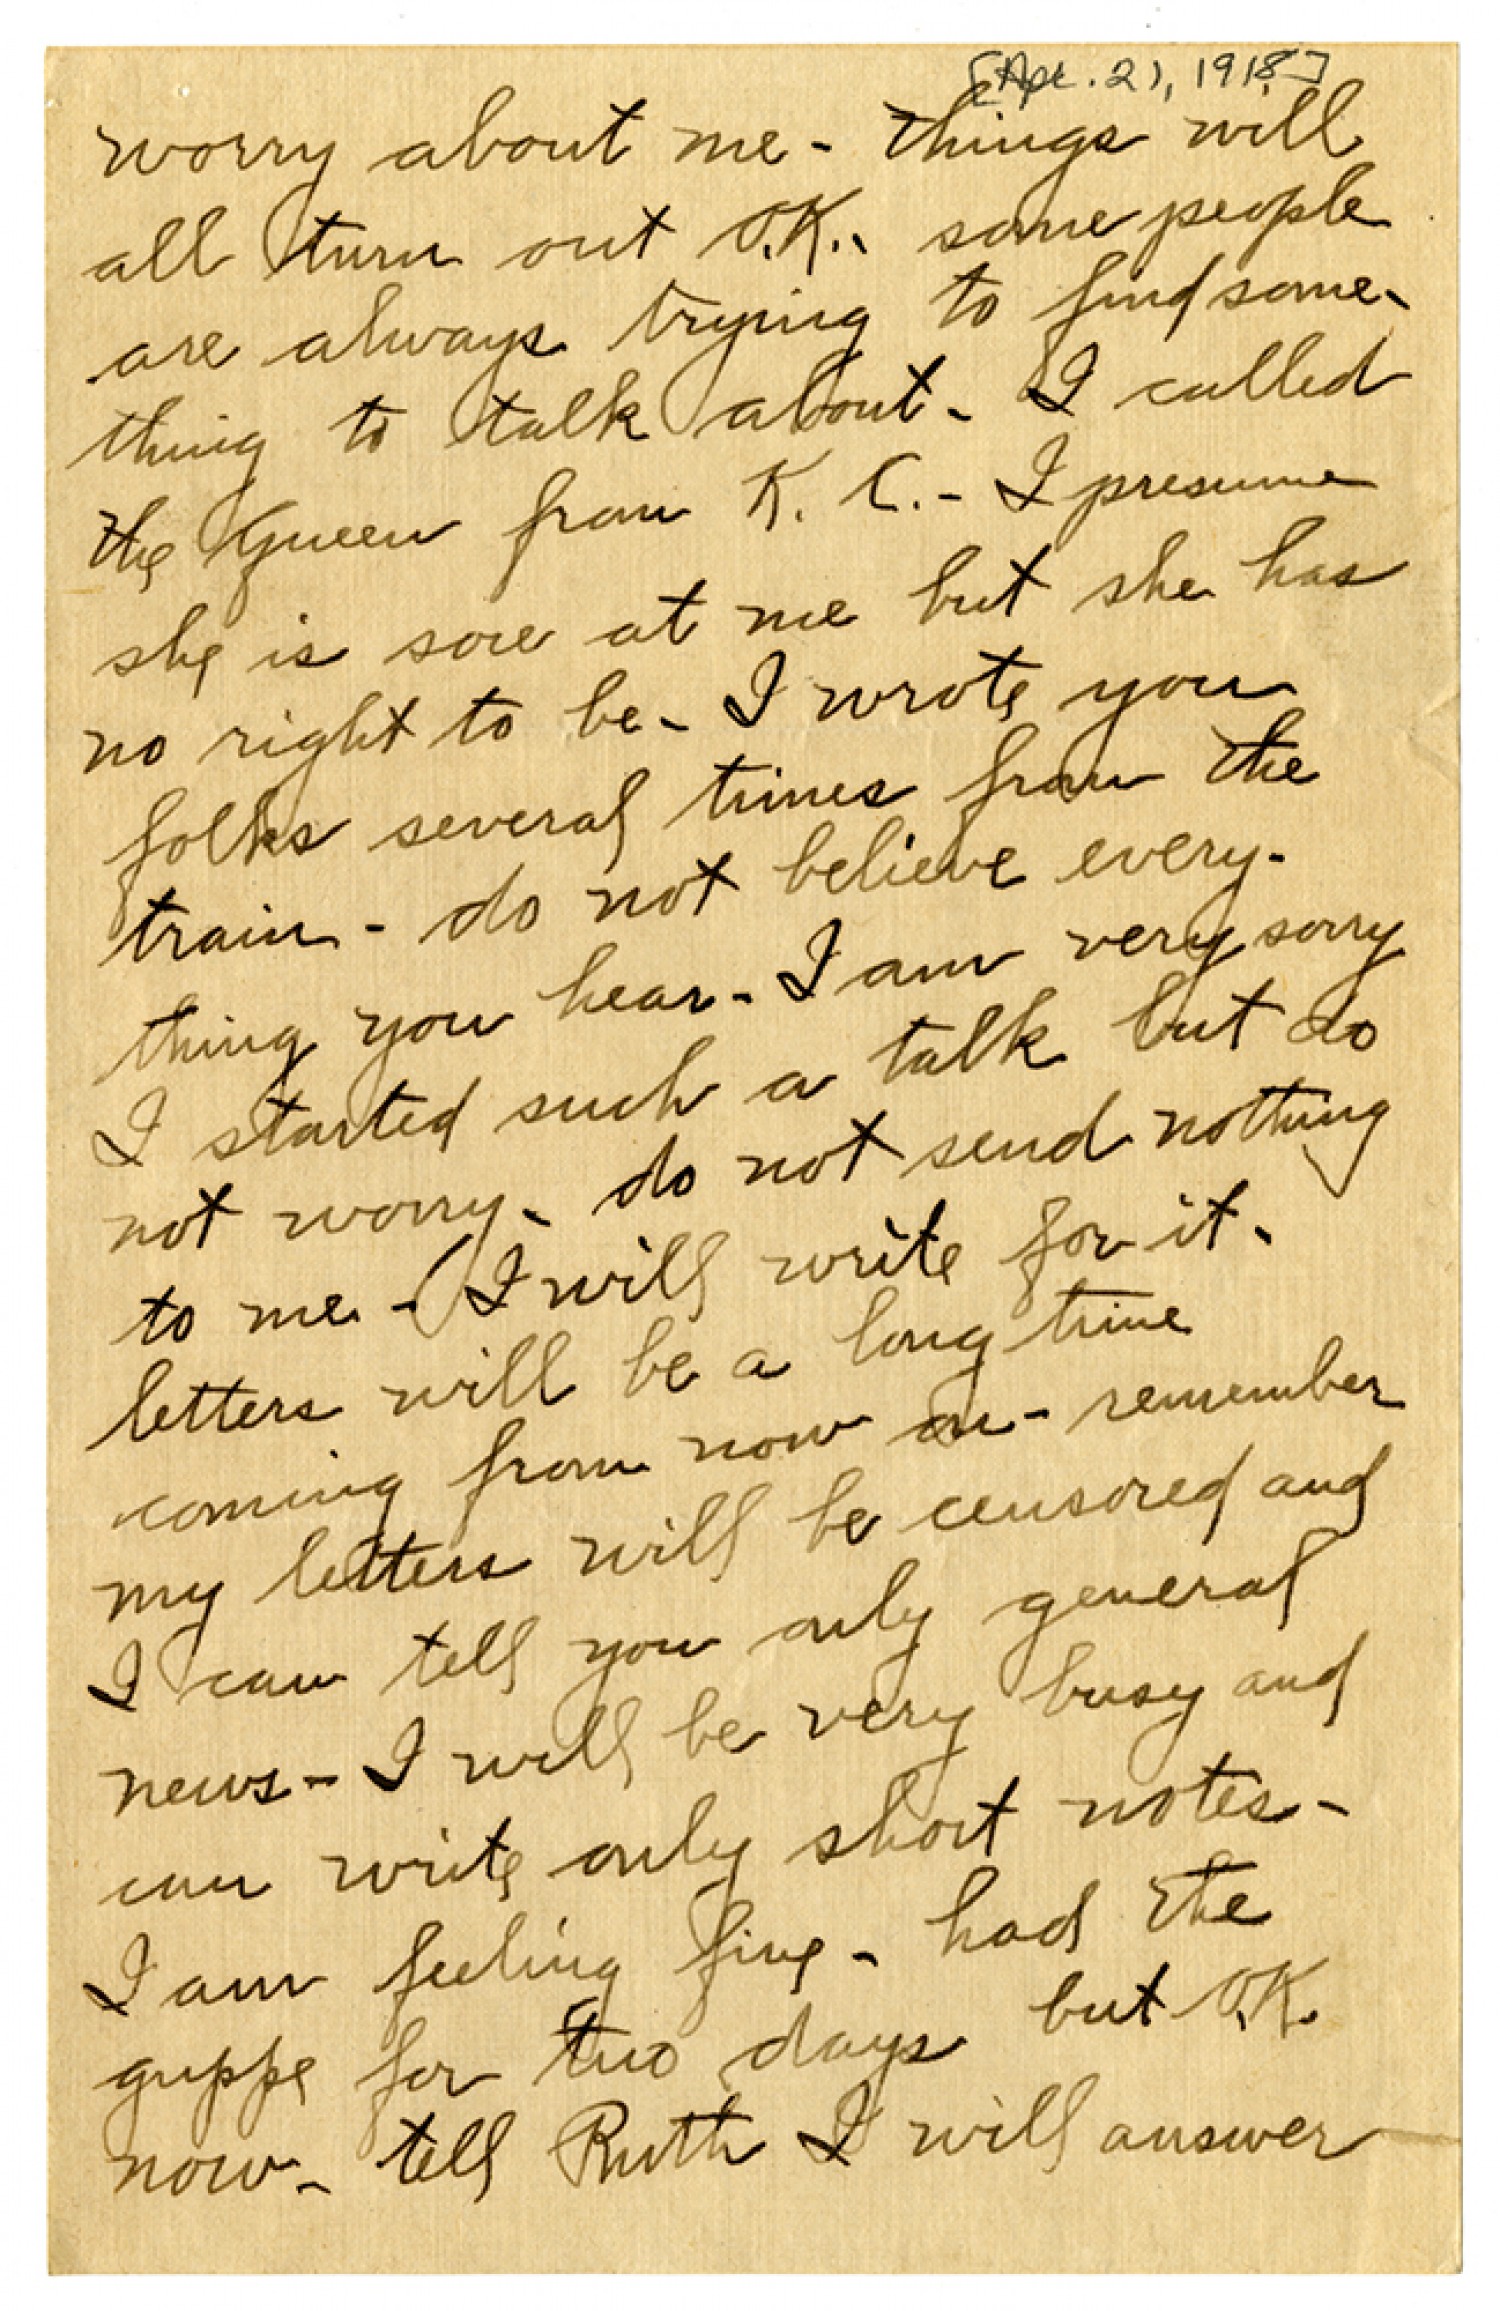 [Apr. 21, 1918]
worry about me - things will
all turn out O.K. some people
are always trying to find some-
thing to talk about - I called
the Queen from K. C. - I presume
she is sore at me but she has
no right to be - I wrote you
folks several times from the
train - do not believe every-
thing you hear - I am very sorry
I started such a talk but do
not worry - do not send nothing
to me - I will write for it -
letters will be a long time
coming from now on - remember
my letters will be censored and
I can tell you only general
news - I will be very busy and
can write only short notes -
I am feeling fine - had the
grippe for two days but O.K.
now - tell Ruth I will answer